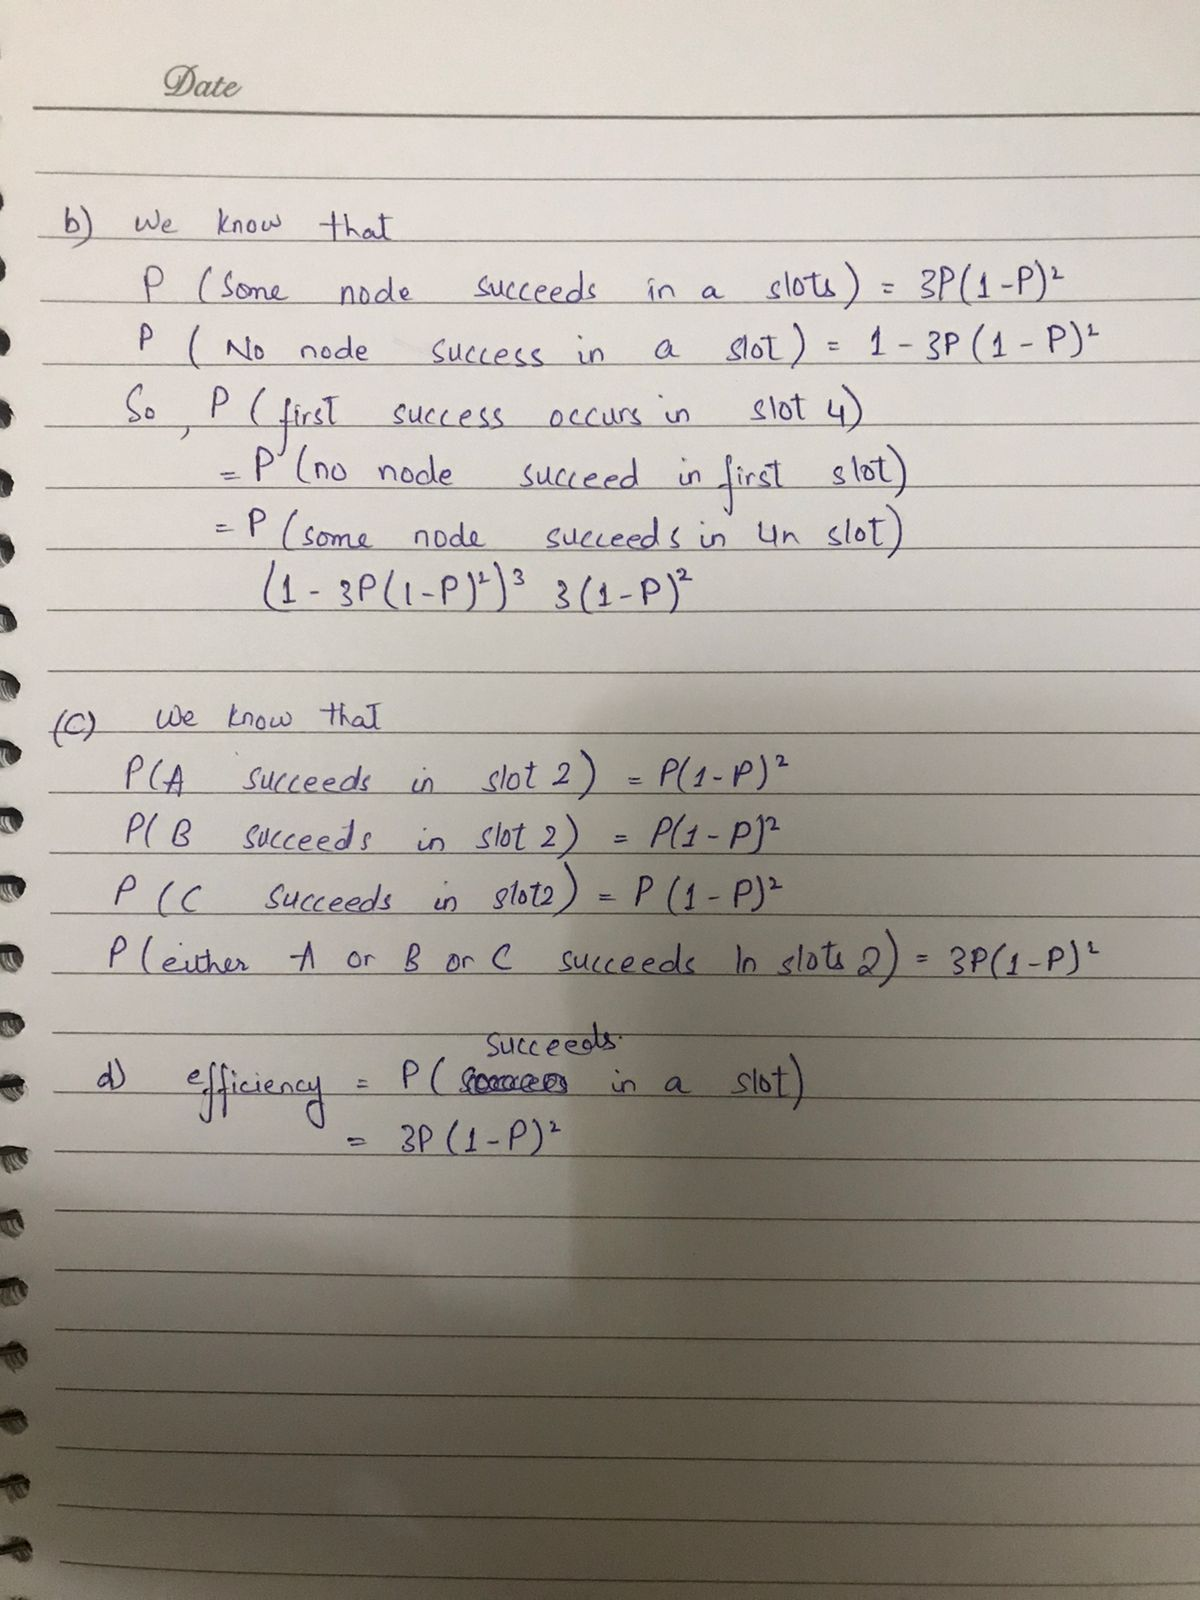 Date
b) We know that
P (Some node succeeds in a slots) = 3P(1-P)²
P (No node success in a slot) = 1 - 3P(1-P)²
So, P (first success occurs in slot 4)
= P (no node succeed in first slot)
= P (some node succeeds in 4n slot)
(1 - 3P(1-P)²)³ 3(1-P)²
(C) We know that
P(A succeeds in slot 2) = P(1-P)²
P(B succeeds in slot 2) = P(1-P)²
P (C succeeds in slot2) = P (1-P)²
P (either A or B or C succeeds In slots 2) = 3P(1-P)²
succeeds
d) efficiency = P ( in a slot)
= 3P (1-P)²